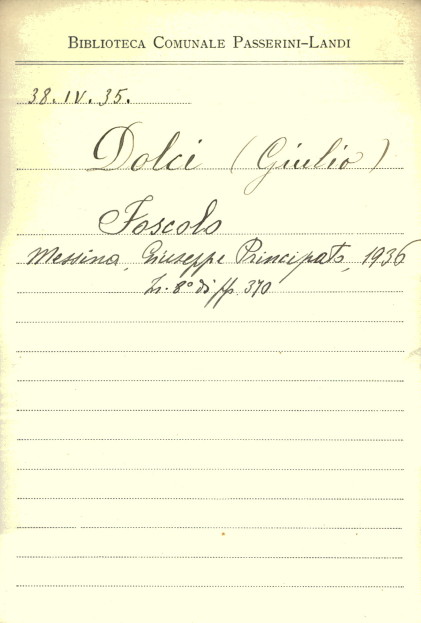 BIBLIOTECA COMUNALE PASSERINI-LANDI
38.IV.35.
Dolci (Giulio)
Foscolo
Messina, Giuseppe Principato, 1936
In 8° di pp. 370